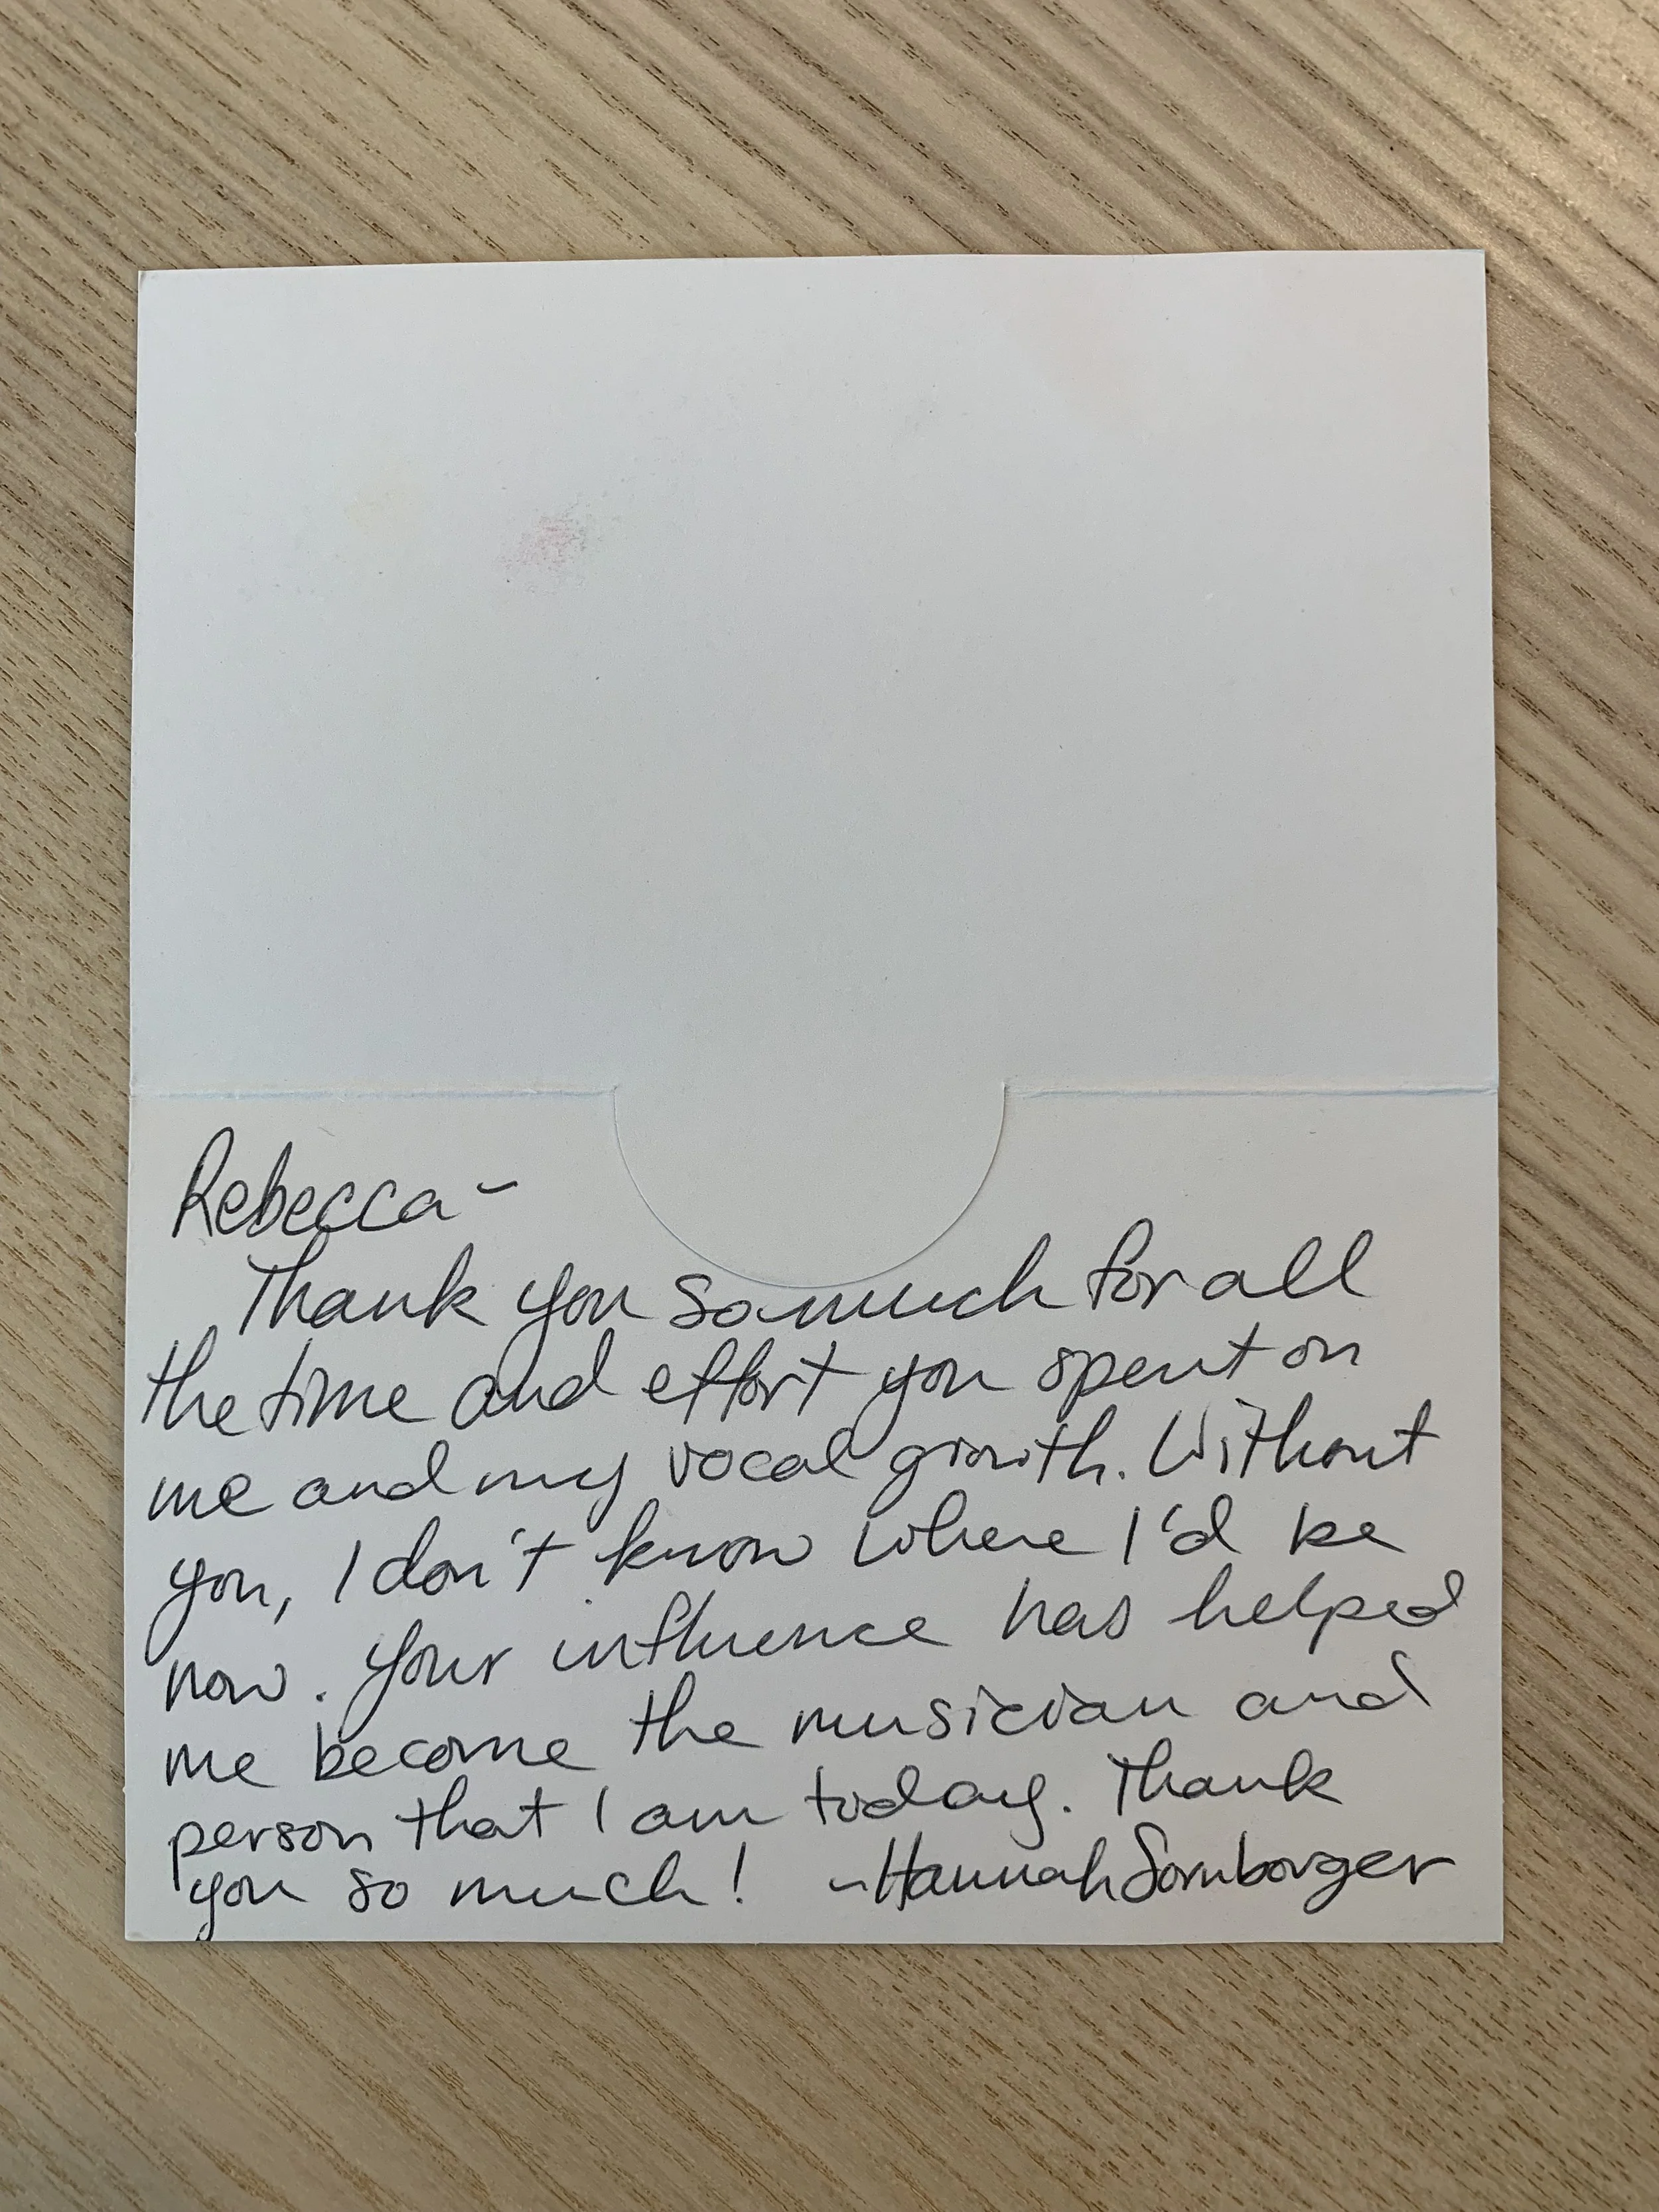 Rebecca-
Thank you so much for all
the time and effort you spent on
me and my vocal growth. Without
you, I don't know where I'd be
now. Your influence has helped
me become the musician and
person that I am today. Thank
you so much! ~Hannah Sornborger